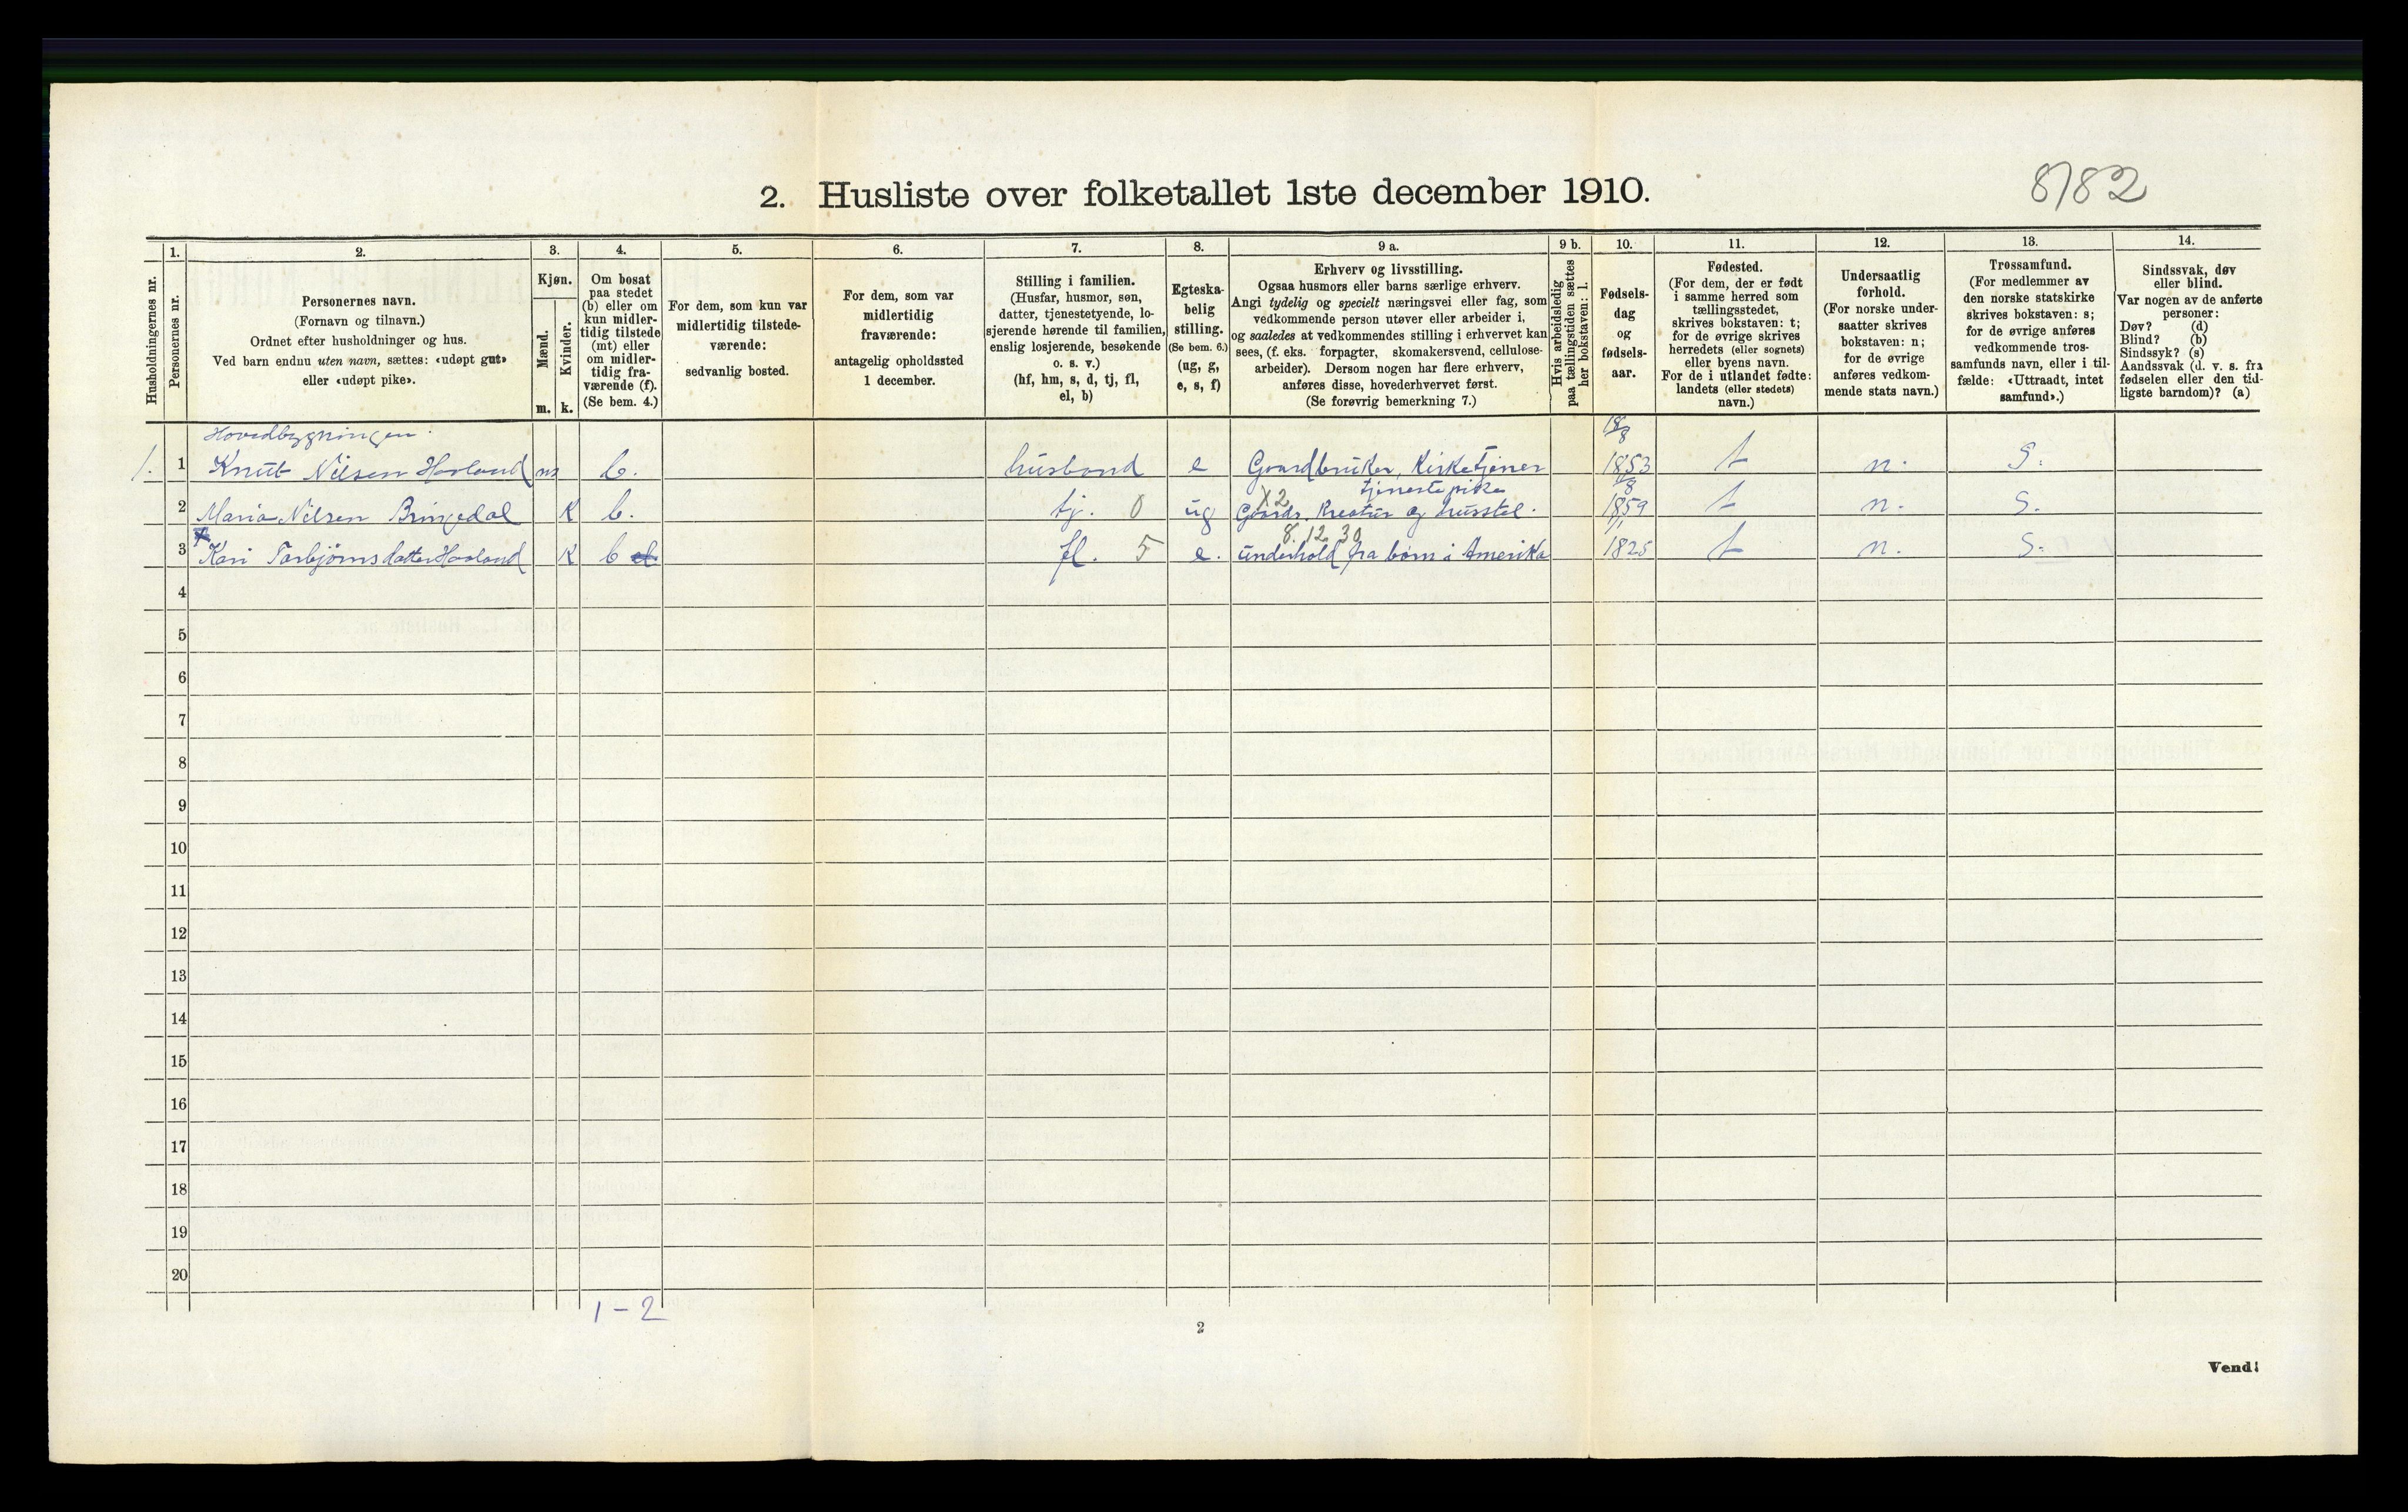 8/82
2. Husliste over folketallet 1ste december 1910.
Husholdningernes nr.
1.
Personernes nr.
2.
Personernes navn.
(Fornavn og tilnavn.)
Ordnet efter husholdninger og hus.
Ved barn endnu uten navn, sættes: «udøpt gut»
eller «udøpt pike».
3.
Kjøn.
Mænd.
m.
Kvinder.
k.
4.
Om bosat
paa stedet
(b) eller om
kun midler-
tidig tilstede
(mt) eller
om midler-
tidig fra-
værende (f).
(Se bem. 4.)
5.
For dem, som kun var
midlertidig tilstede-
værende:
sedvanlig bosted.
6.
For dem, som var
midlertidig
fraværende:
antagelig opholdssted
1 december.
7.
Stilling i familien.
(Husfar, husmor, søn,
datter, tjenestetyende, lo-
sjerende hørende til familien,
enslig losjerende, besøkende
o. s. v.)
(hf, hm, s, d, tj, fl,
el, b)
8.
Egteska-
belig
stilling.
(Se bem. 6.)
(ug, g,
e, s, f)
9 a.
Erhverv og livsstilling.
Ogsaa husmors eller barns særlige erhverv.
Angi tydelig og specielt næringsvei eller fag, som
vedkommende person utøver eller arbeider i,
og saaledes at vedkommendes stilling i erhvervet kan
sees, (f. eks. forpagter, skomakersvend, cellulose-
arbeider). Dersom nogen har flere erhverv,
anføres disse, hovederhvervet først.
(Se forøvrig bemerkning 7.)
9 b.
Hvis arbeidsledig
paa tællingstiden sættes
her bokstaven: l.
10.
Fødsels-
dag
og
fødsels-
aar.
11.
Fødested.
(For dem, der er født
i samme herred som
tællingsstedet,
skrives bokstaven: t;
for de øvrige skrives
herredets (eller sognets)
eller byens navn.
For de i utlandet fødte:
landets (eller stedets)
navn.)
12.
Undersaatlig
forhold.
(For norske under-
saatter skrives
bokstaven: n;
for de øvrige
anføres vedkom-
mende stats navn.)
13.
Trossamfund.
(For medlemmer av
den norske statskirke
skrives bokstaven: s;
for de øvrige anføres
vedkommende tros-
samfunds navn, eller i til-
fælde: «Uttraadt, intet
samfund».)
14.
Sindssvak, døv
eller blind.
Var nogen av de anførte
personer:
Døv? (d)
Blind? (b)
Sindssyk? (s)
Aandssvak (d. v. s. fra
fødselen eller den tid-
ligste barndom)? (a)
Hovedbygningen
1. 1 Knut Nilsen Hovland m b. husbond e Gaardbruker, Kirketjener 18/8 1853 t n. S.
tjenestepike
X2
2 Maria Nilsen Bringedal K b. tj. 0 ug Gaards. Kreatur og husstel. 1859 t n. S.
8. 12 30
3 Kari Torbjørnsdatter Hovland K b fl. 5 e. underhold fra børn i Amerika 1825 t n. S.
4
5
6
7
8
9
10
11
12
13
14
15
16
17
18
19
20
1 - 2
2
Vend!